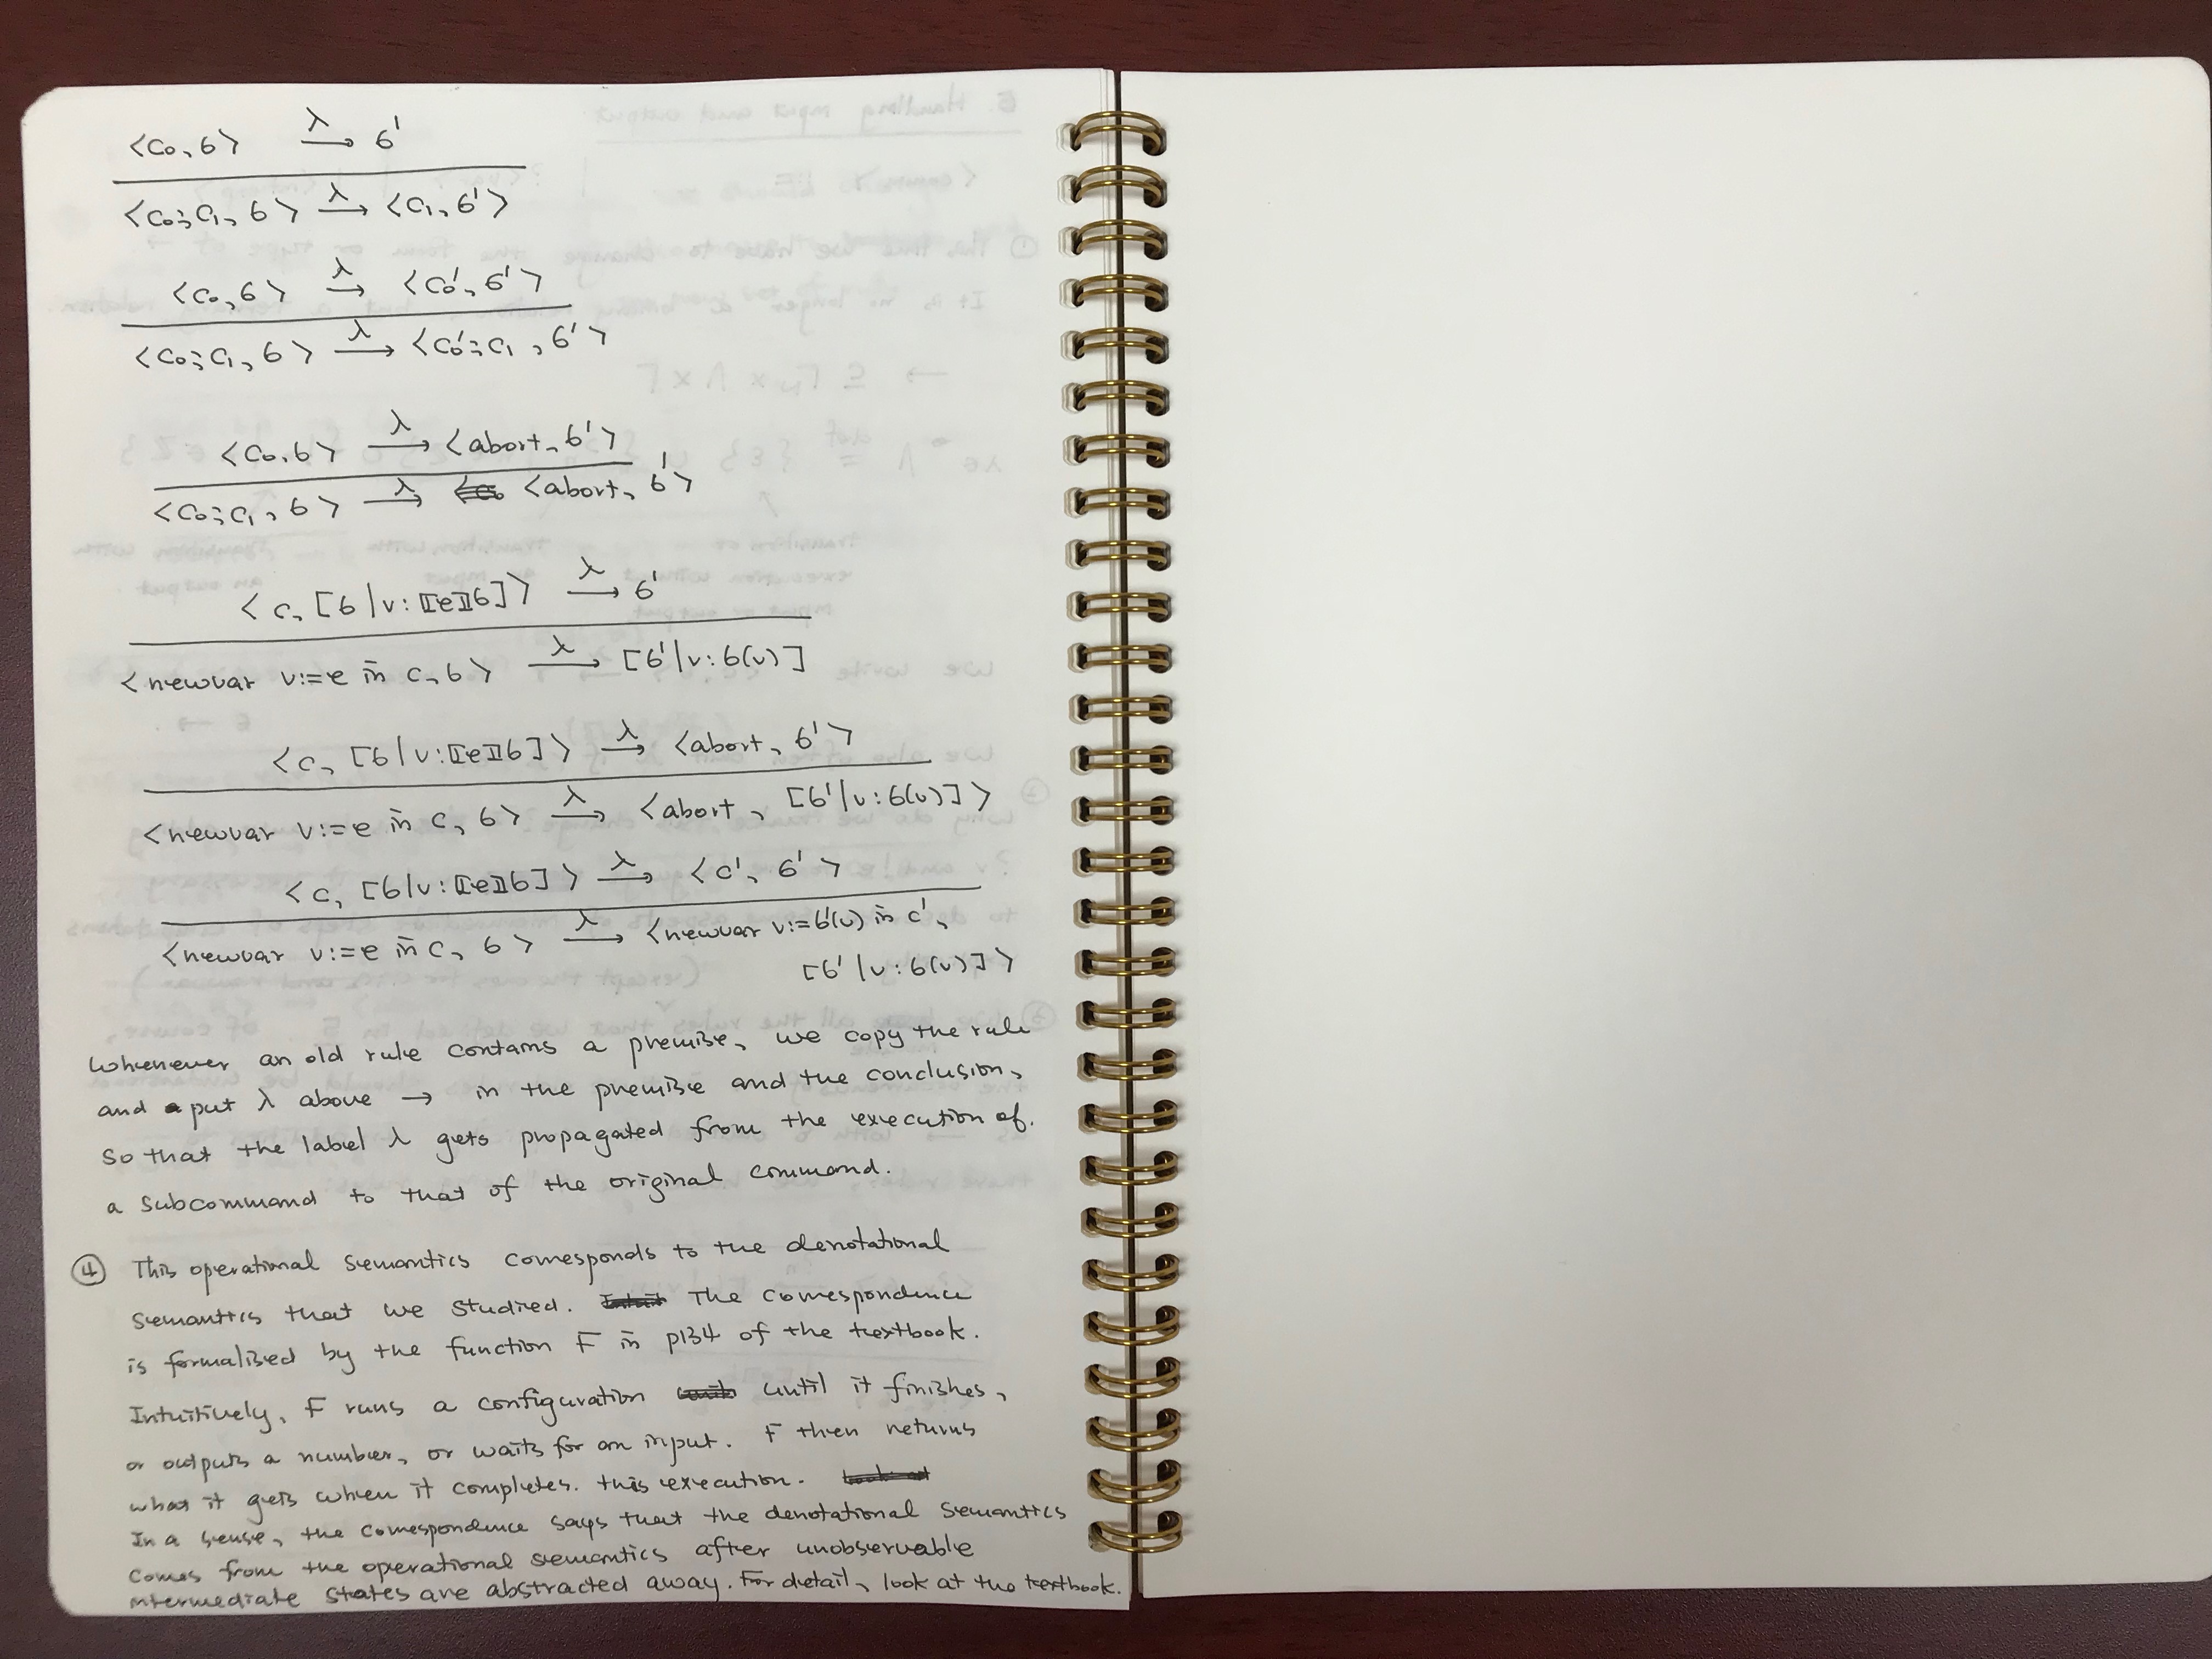 <c₀, σ> →λ σ'
<c₀;c₁, σ> →λ <c₁, σ'>
<c₀, σ> →λ <c₀', σ'>
<c₀;c₁, σ> →λ <c₀';c₁, σ'>
<c₀, σ> →λ <abort, σ'>
<c₀;c₁, σ> →λ <abort, σ'>
<c, [σ|v:⟦e⟧σ]> →λ σ'
<newvar v:=e in c, σ> →λ [σ'|v:σ(v)]
<c, [σ|v:⟦e⟧σ]> →λ <abort, σ'>
<newvar v:=e in c, σ> →λ <abort, [σ'|v:σ(v)]>
<c, [σ|v:⟦e⟧σ]> →λ <c', σ'>
<newvar v:=e in c, σ> →λ <newvar v:=σ'(v) in c',
[σ'|v:σ(v)]>
Whenever an old rule contains a premise, we copy the rule
and put λ above → in the premise and the conclusion,
so that the label λ gets propagated from the execution of.
a subcommand to that of the original command.
④ This operational semantics corresponds to the denotational
semantics that we studied. The correspondence
is formalised by the function F in p134 of the textbook.
Intuitively, F runs a configuration until it finishes,
or outputs a number, or waits for an input. F then returns
what it gets when it completes. this execution.
In a sense, the correspondence says that the denotational semantics
comes from the operational semantics after unobservable
intermediate states are abstracted away. For detail, look at the textbook.